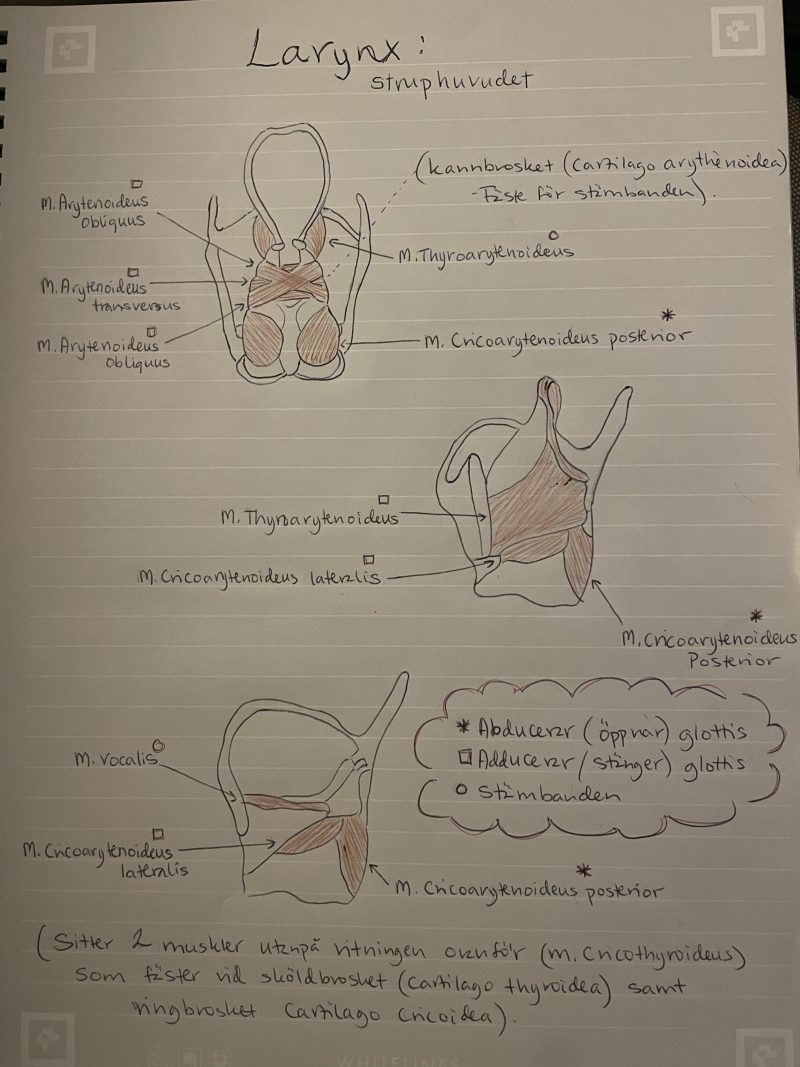 Larynx:
struphuvudet
(kannbrosket (cartilago arythenoidea)
- Fäste för stämbanden).
□
M. Arytenoideus
obliquus
○
M. Thyroarytenoideus
□
M. Arytenoideus
transversus
□
M. Arytenoideus
obliquus
*
M. Cricoarytenoideus posterior
□
M. Thyroarytenoideus
□
M. Cricoarytenoideus lateralis
*
M. Cricoarytenoideus
Posterior
* Abducerar (öppnar) glottis
□ Adducerar / stänger) glottis
○ Stämbanden
○
M. vocalis
□
M. Cricoarytenoideus
lateralis
*
M. Cricoarytenoideus posterior
(Sitter 2 muskler utanpå ritningen ovanför (m. Cricothyroideus)
som fäster vid sköldbrosket (cartilago thyroidea) samt
ringbrosket Cartilago Cricoidea).
WHITELINES